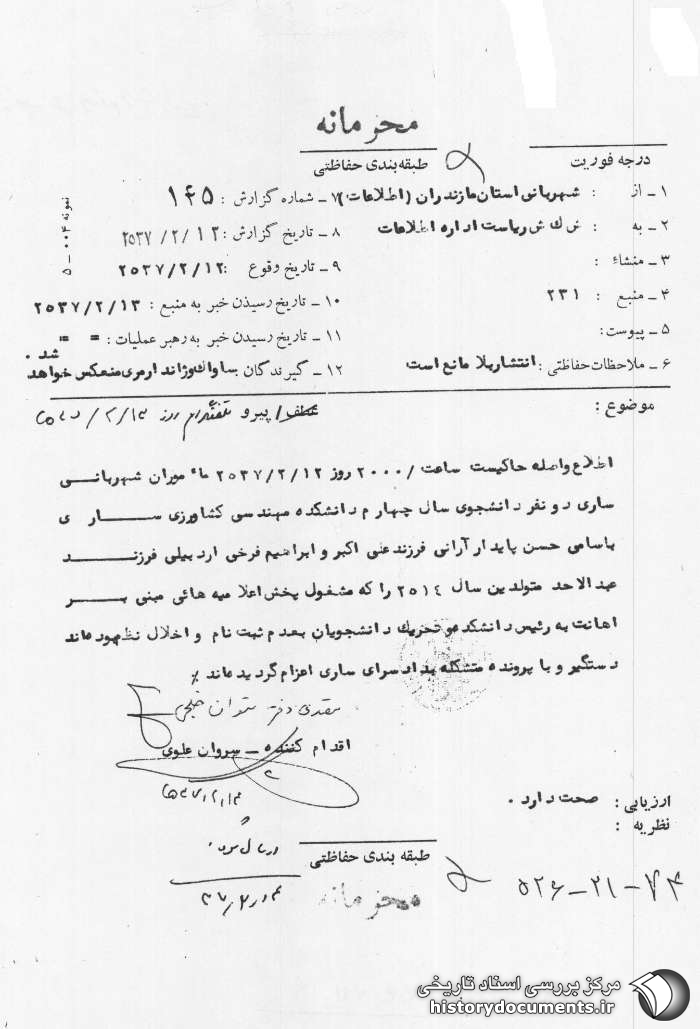 محرمانه
درجه فوریت
طبقه‌بندی حفاظتی
۱ ـ از : شهربانی استان مازندران (اطلاعات)
۷ ـ شماره گزارش : ۱۴۵
۲ ـ به : ش ك ش ریاست اداره اطلاعات
۸ ـ تاریخ گزارش : ۲۵۳۷/۲/۱۲
۳ ـ منشاء :
۹ ـ تاریخ وقوع : ۲۵۳۷/۲/۱۲
۴ ـ منبع : ۲۳۱
۱۰ ـ تاریخ رسیدن خبر به منبع : ۲۵۳۷/۲/۱۳
۵ ـ پیوست:
۱۱ ـ تاریخ رسیدن خبر به رهبر عملیات : = =
۶ ـ ملاحظات حفاظتی : انتشار بلا مانع است
۱۲ ـ گیرندگان ساواك وژاندارمری منعکس خواهد شد .
نمونه ۰۰۴ ـ ۵
موضوع : عطف/ پیرو تلفنگرام روز ۲۵۳۷/۲/۱۳
اطلاع واصله حاکیست ساعت /۲۰۰۰ روز ۲۵۳۷/۲/۱۲ ماموران شهربانـــی
ساری دو نفر دانشجوی سال چهارم دانشکده مهندسی کشاورزی ســـاری
باسامی حسن پایدار آرانی فرزند علی اکبر و ابراهیم فرخی اردبیلی فرزنـــد
عبدالاحد متولدین سال ۲۵۱۴ را که مشغول پخش اعلامیه هائی مبنی بـــر
اهانت به رئیس دانشکده و تحریك دانشجویان بعدم ثبت نام و اخلال نظم بوده‌اند
دستگیر و با پرونده متشکله بدادسرای ساری اعزام گردیده‌اند ٪
متصدی دفتر ستوان خلجی
اقدام کننده ـ سروان علوی
۲۵۳۷/۲/۱۳
ارزیابی : صحت دارد .
نظریه :
ارسال شود
طبقه بندی حفاظتی
۳۷/۲/
۵۲۶-۲۱-۷۴
محرمانه
مرکز بررسی اسناد تاریخی
historydocuments.ir